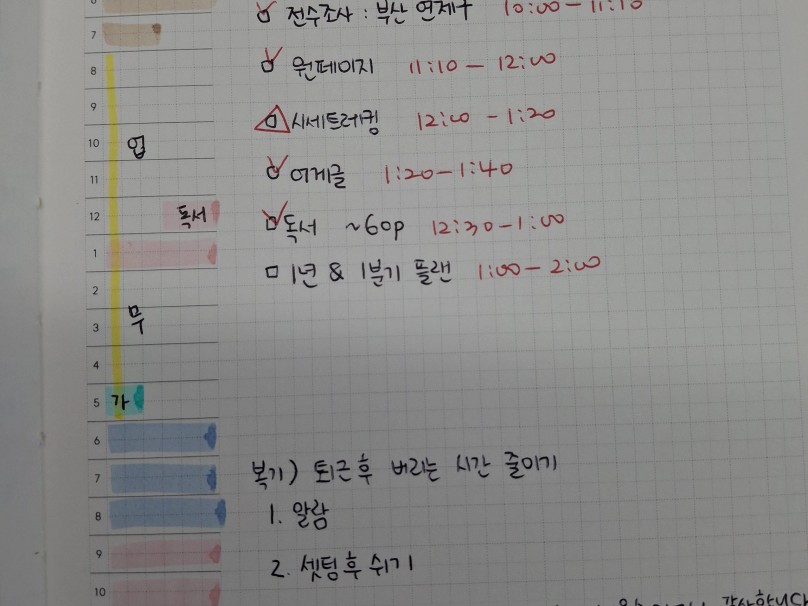 전수조사 : 부산 연제구 10:00 - 11:10
7
8 원페이지 11:10 - 12:00
9 시세트레킹 12:00 - 1:20
10 업
11 어게글 1:20 - 1:40
12 독서 독서 ~60p 12:30 - 1:00
1 1년 & 1분기 플랜 1:00 - 2:00
2
3 무
4
5 가
6
7 복기) 퇴근 후 버리는 시간 줄이기
8 1. 알람
9 2. 셋팅 후 쉬기
10 감사합니다